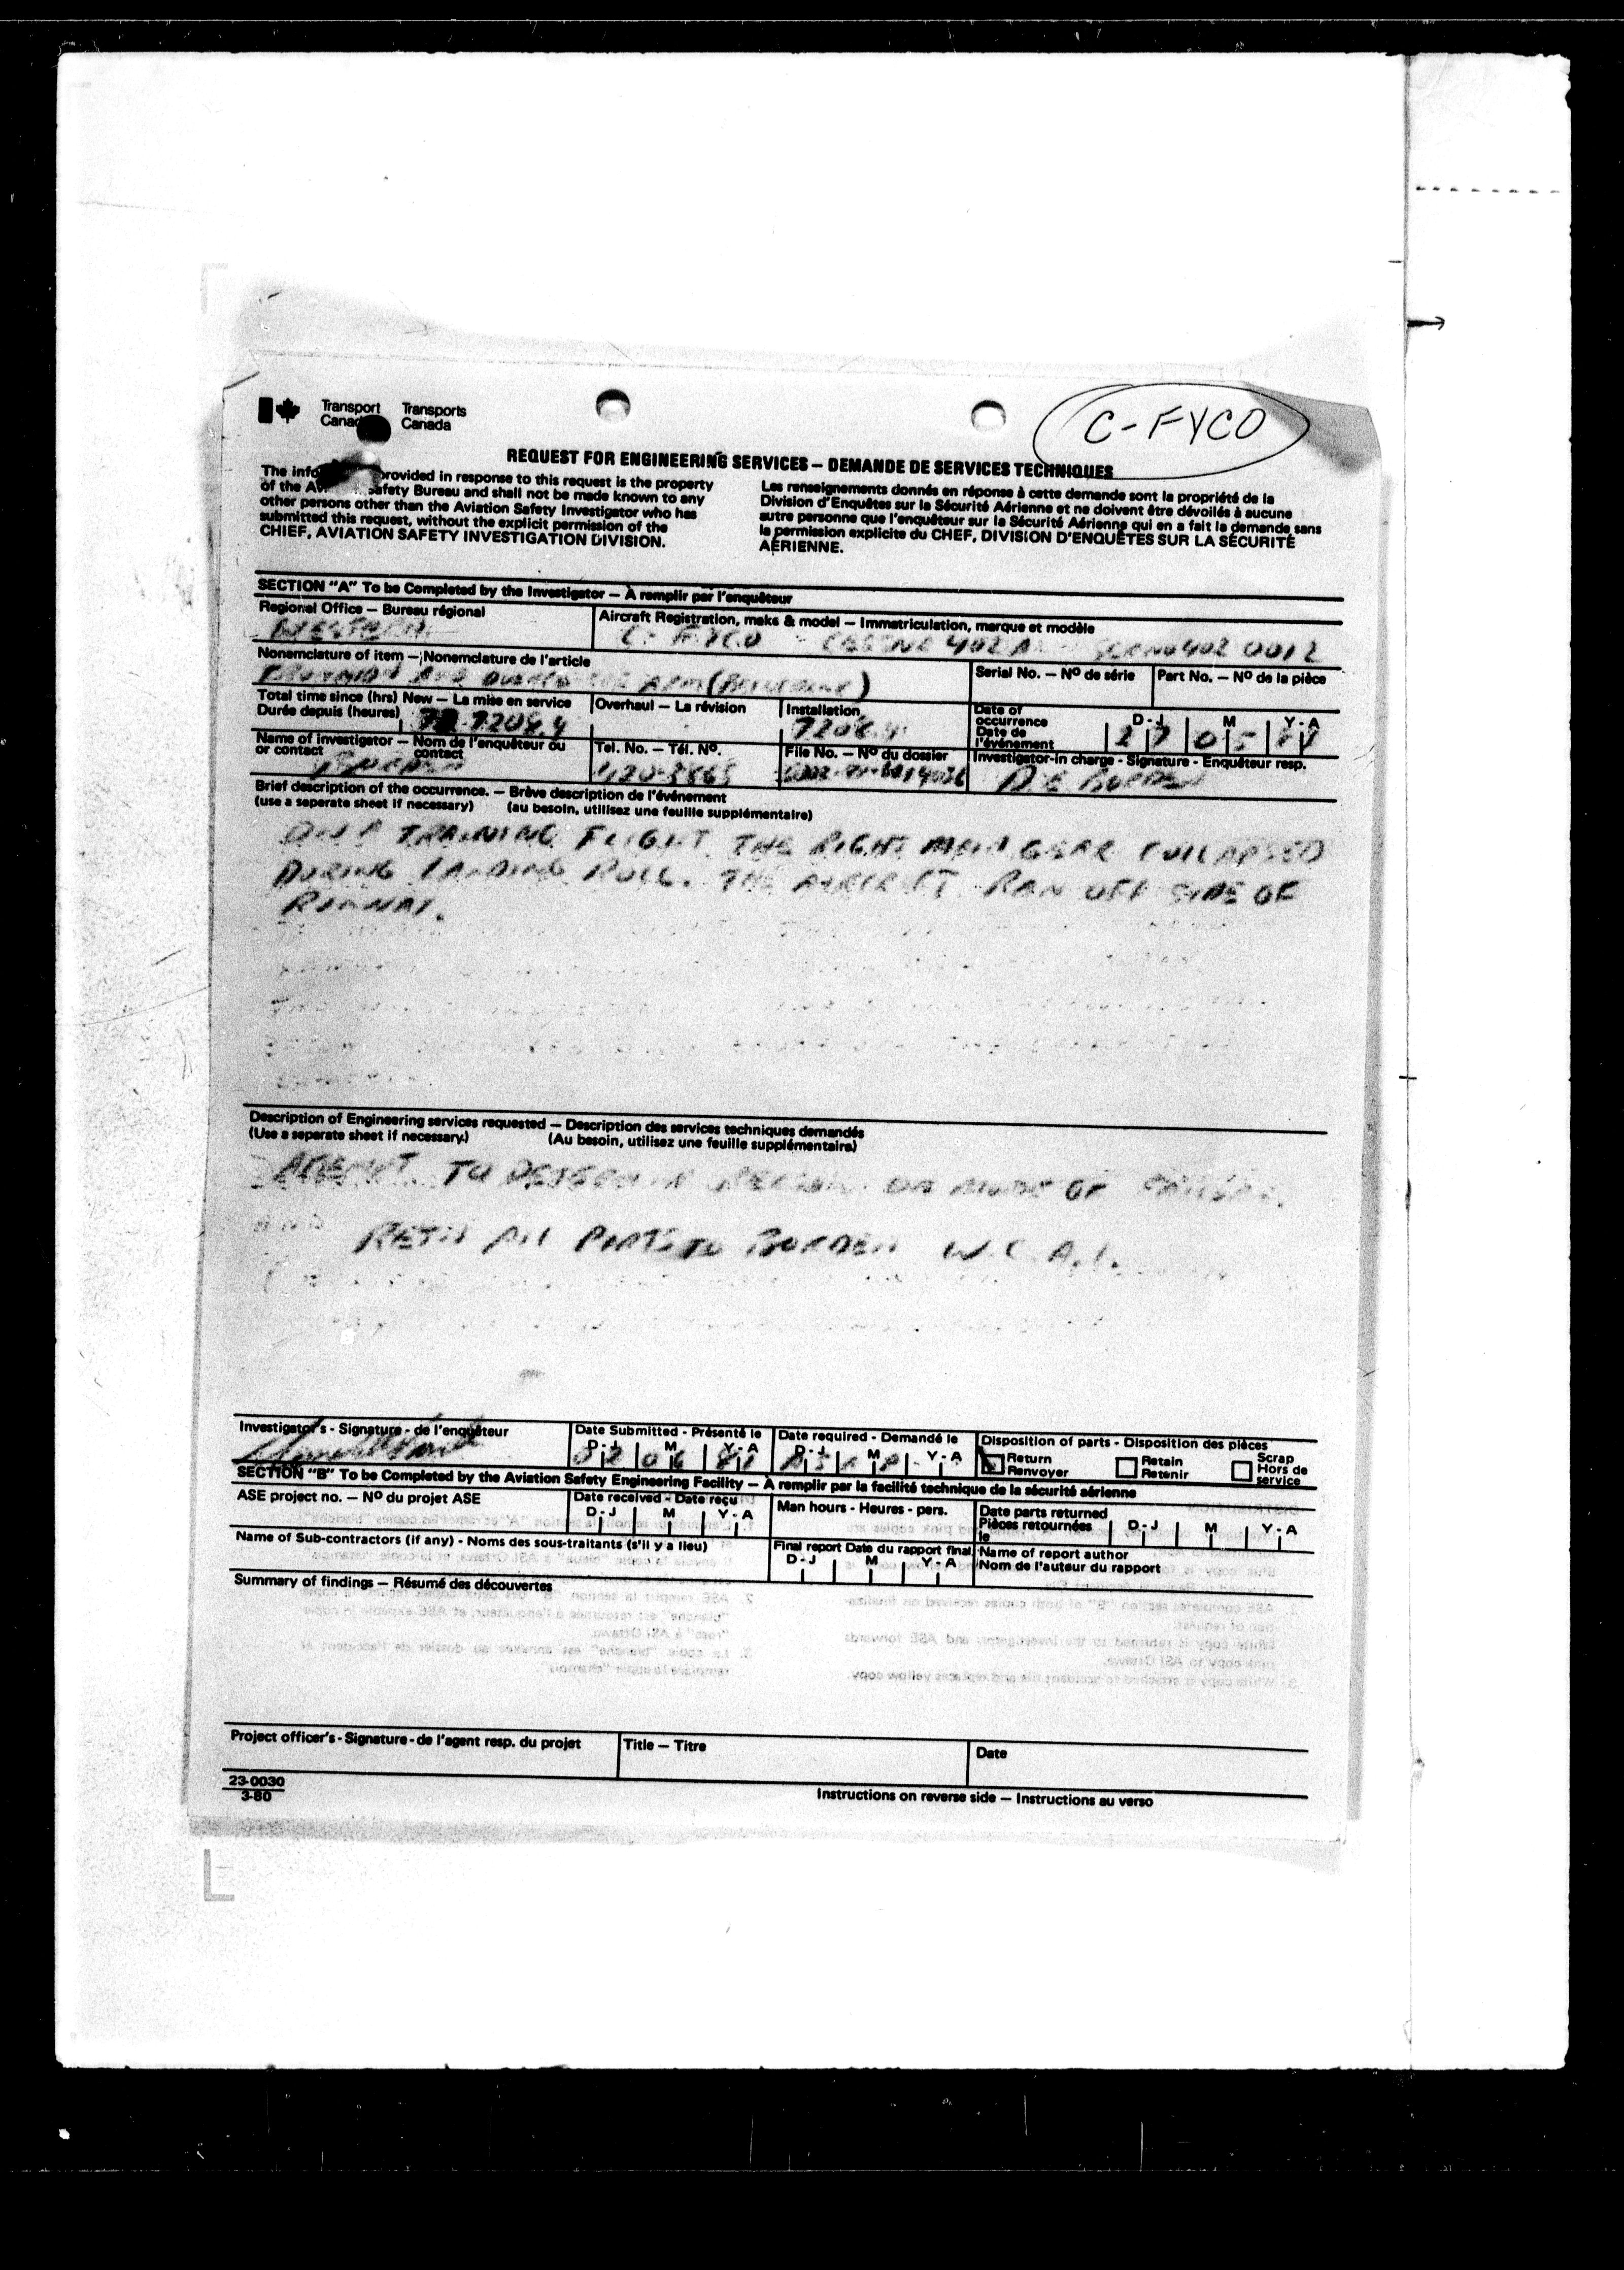 Transport Canada Transports Canada
C-FYCO
REQUEST FOR ENGINEERING SERVICES – DEMANDE DE SERVICES TECHNIQUES
The provided in response to this request is the property
of the Safety Bureau and shall not be made known to any
other persons other than the Aviation Safety Investigator who has
submitted this request, without the explicit permission of the
CHIEF, AVIATION SAFETY INVESTIGATION DIVISION.
Les renseignements donnés en réponse à cette demande sont la propriété de la
Division d'Enquêtes sur la Sécurité Aérienne et ne doivent être dévoilés à aucune
autre personne que l'enquêteur sur la Sécurité Aérienne qui en a fait la demande sans
la permission explicite du CHEF, DIVISION D'ENQUÊTES SUR LA SÉCURITÉ
AÉRIENNE.
SECTION "A" To be Completed by the Investigator – À remplir par l'enquêteur
Regional Office – Bureau régional
WESTERN
Aircraft Registration, make & model – Immatriculation, marque et modèle
C-FYCO CESSNA 402A 402 0012
Nonemclature of item – Nonemclature de l'article
ARM (BELLCRANK)
Serial No. – Nº de série
Part No. – Nº de la pièce
Total time since (hrs) New – La mise en service
Durée depuis (heures) 7208.4
Overhaul – La révision
Installation
7208.4
Date of occurrence
Date de l'événement
D-J M Y-A
27 05 81
Name of investigator – Nom de l'enquêteur ou
or contact contact
BORDEN
Tel. No. – Tél. Nº.
File No. – Nº du dossier
Investigator-in charge - Signature - Enquêteur resp.
D E BORDEN
Brief description of the occurrence. – Brève description de l'événement
(use a seperate sheet if necessary) (au besoin, utilisez une feuille supplémentaire)
ON A TRAINING FLIGHT THE RIGHT MAIN GEAR COLLAPSED
DURING LANDING ROLL. THE AIRCRAFT RAN OFF SIDE OF
RUNWAY.
Description of Engineering services requested – Description des services techniques demandés
(Use a separate sheet if necessary.) (Au besoin, utilisez une feuille supplémentaire)
ATTEMPT TO DETERMINE REASON OR MODE OF FAILURE.
RETN ALL PARTS TO BORDEN W.C.A.I.
Investigator's - Signature - de l'enquêteur
Date Submitted - Présenté le
D-J M Y-A
02 06 81
Date required - Demandé le
D-J M Y-A
ASAP
Disposition of parts - Disposition des pièces
Return Renvoyer
Retain Retenir
Scrap Hors de service
SECTION "B" To be Completed by the Aviation Safety Engineering Facility – À remplir par la facilité technique de la sécurité aérienne
ASE project no. – Nº du projet ASE
Date received - Date reçu
D-J M Y-A
Man hours - Heures - pers.
Date parts returned
Pièces retournées le
D-J M Y-A
Name of Sub-contractors (if any) - Noms des sous-traitants (s'il y a lieu)
Final report Date du rapport final
D-J M Y-A
Name of report author
Nom de l'auteur du rapport
Summary of findings – Résumé des découvertes
Project officer's - Signature - de l'agent resp. du projet
Title – Titre
Date
23-0030
3-80
Instructions on reverse side – Instructions au verso